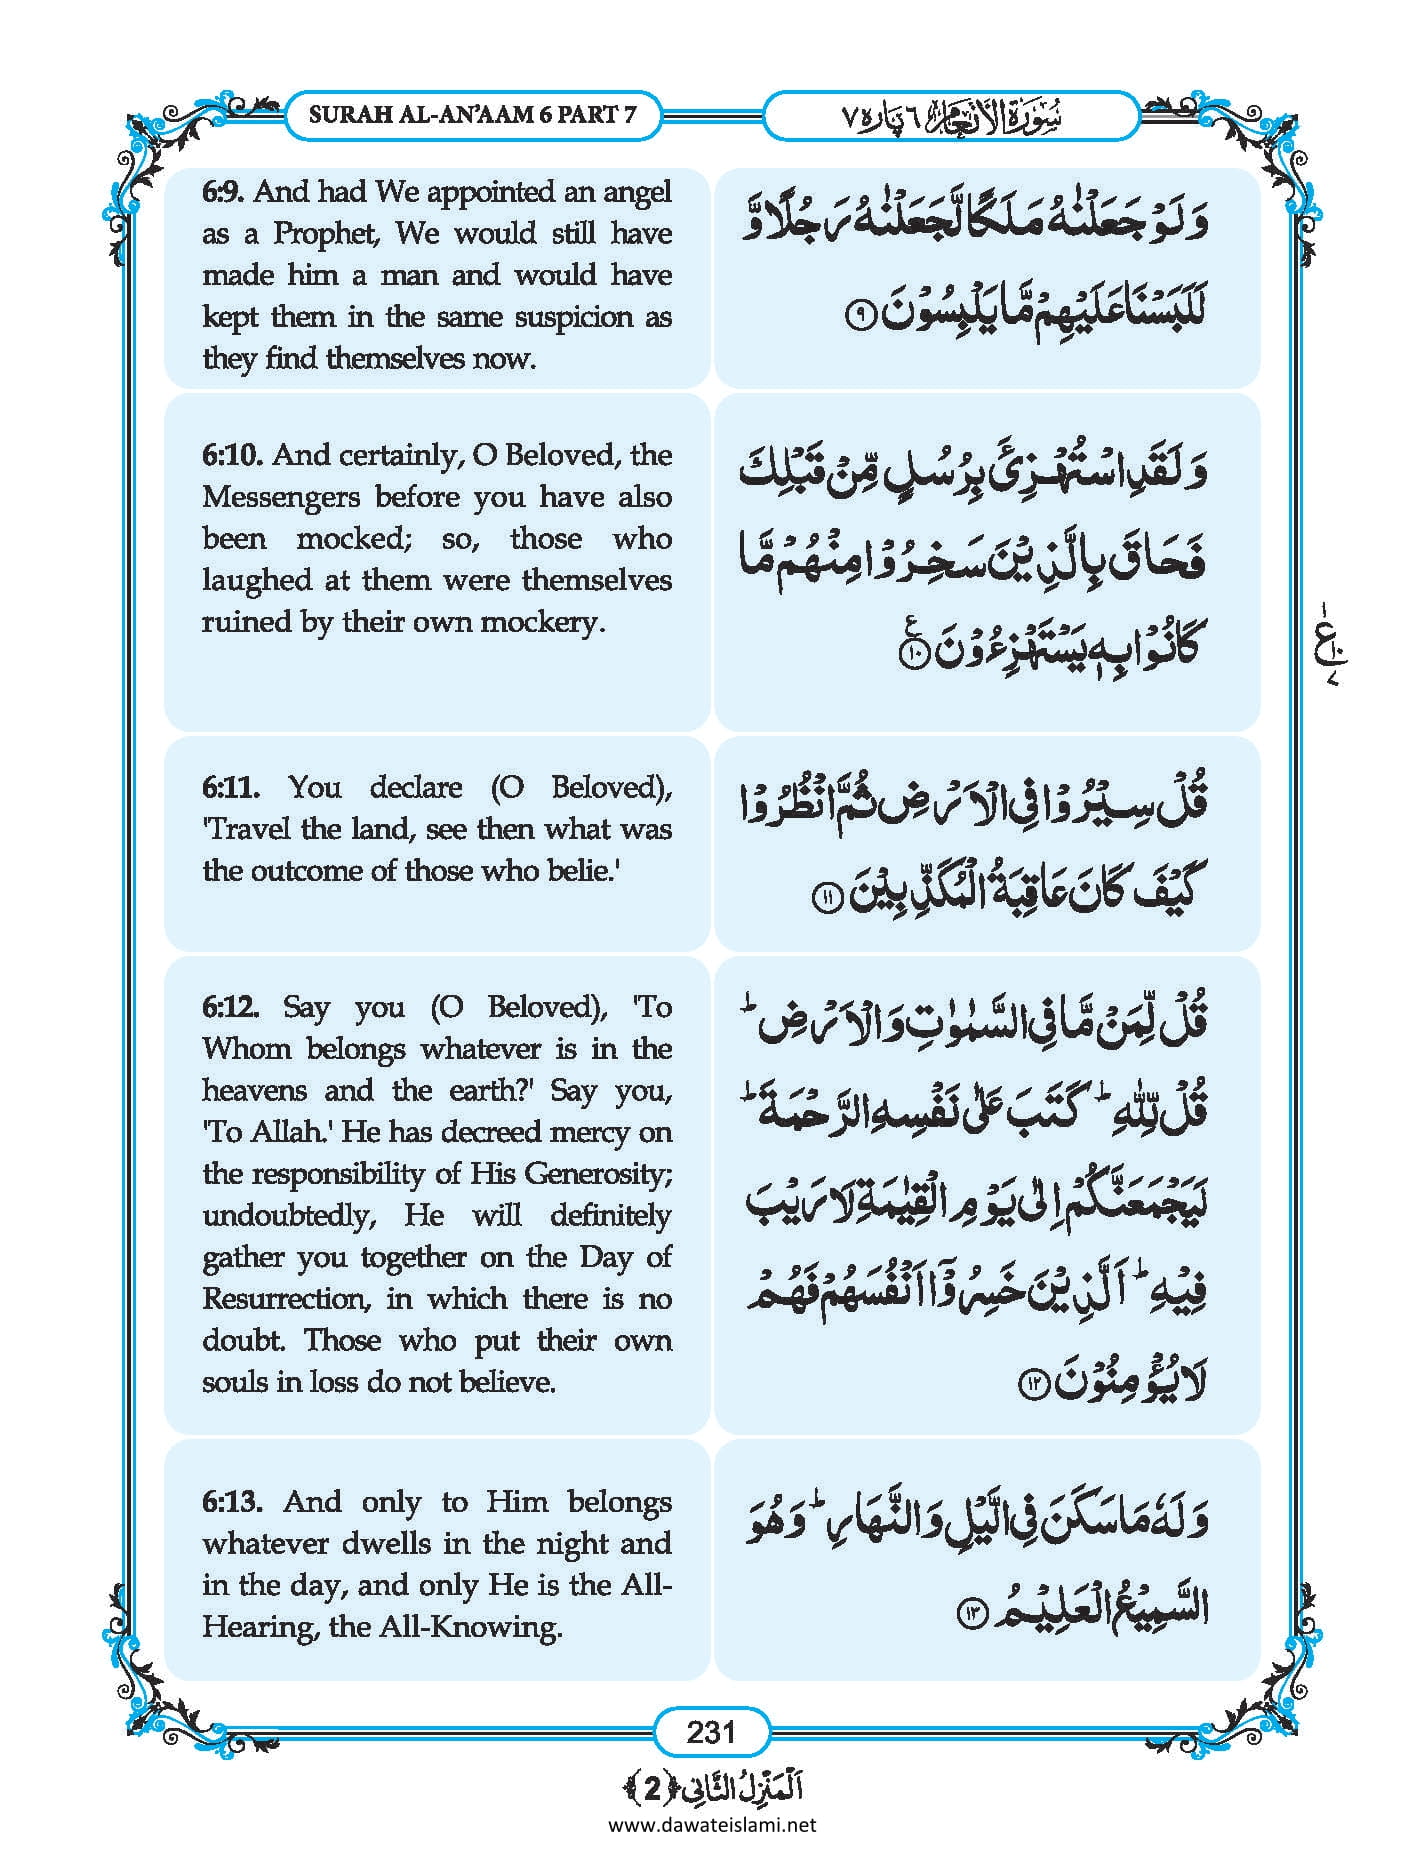 SURAH AL-AN’AAM 6 PART 7
سُوْرَةُ الْأَنْعَام ٦ پارہ ٧
6:9. And had We appointed an angel
as a Prophet, We would still have
made him a man and would have
kept them in the same suspicion as
they find themselves now.
وَ لَوْ جَعَلْنٰهُ مَلَكًا لَّجَعَلْنٰهُ رَجُلًا وَّ
لَلَبَسْنَا عَلَیْهِمْ مَّا یَلْبِسُوْنَ ۹
6:10. And certainly, O Beloved, the
Messengers before you have also
been mocked; so, those who
laughed at them were themselves
ruined by their own mockery.
وَ لَقَدِ اسْتُهْزِئَ بِرُسُلٍ مِّنْ قَبْلِكَ
فَحَاقَ بِالَّذِیْنَ سَخِرُوْا مِنْهُمْ مَّا
كَانُوْا بِهٖ یَسْتَهْزِءُوْنَ ۱۰ ع
۱
ع
۱۰
۷
6:11. You declare (O Beloved),
'Travel the land, see then what was
the outcome of those who belie.'
قُلْ سِیْرُوْا فِی الْاَرْضِ ثُمَّ انْظُرُوْا
كَیْفَ كَانَ عَاقِبَةُ الْمُكَذِّبِیْنَ ۱۱
6:12. Say you (O Beloved), 'To
Whom belongs whatever is in the
heavens and the earth?' Say you,
'To Allah.' He has decreed mercy on
the responsibility of His Generosity;
undoubtedly, He will definitely
gather you together on the Day of
Resurrection, in which there is no
doubt. Those who put their own
souls in loss do not believe.
قُلْ لِّمَنْ مَّا فِی السَّمٰوٰتِ وَ الْاَرْضِ ؕ
قُلْ لِّلّٰهِ ؕ كَتَبَ عَلٰى نَفْسِهِ الرَّحْمَةَ ؕ
لَیَجْمَعَنَّكُمْ اِلٰى یَوْمِ الْقِیٰمَةِ لَا رَیْبَ
فِیْهِ ؕ اَلَّذِیْنَ خَسِرُوْۤا اَنْفُسَهُمْ فَهُمْ
لَا یُؤْمِنُوْنَ ۱۲
6:13. And only to Him belongs
whatever dwells in the night and
in the day, and only He is the All-
Hearing, the All-Knowing.
وَ لَهٗ مَا سَكَنَ فِی الَّیْلِ وَ النَّهَارِ ؕ وَ هُوَ
السَّمِیْعُ الْعَلِیْمُ ۱۳
231
اَلْمَنْزِلُ الثَّانِی ﴿2﴾
www.dawateislami.net